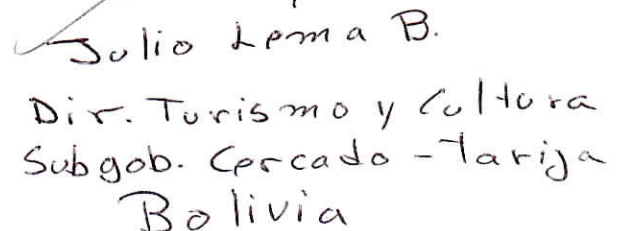 Julio Lema B.
Dir. Turismo y Cultura
Subgob. Cercado - Tarija
Bolivia